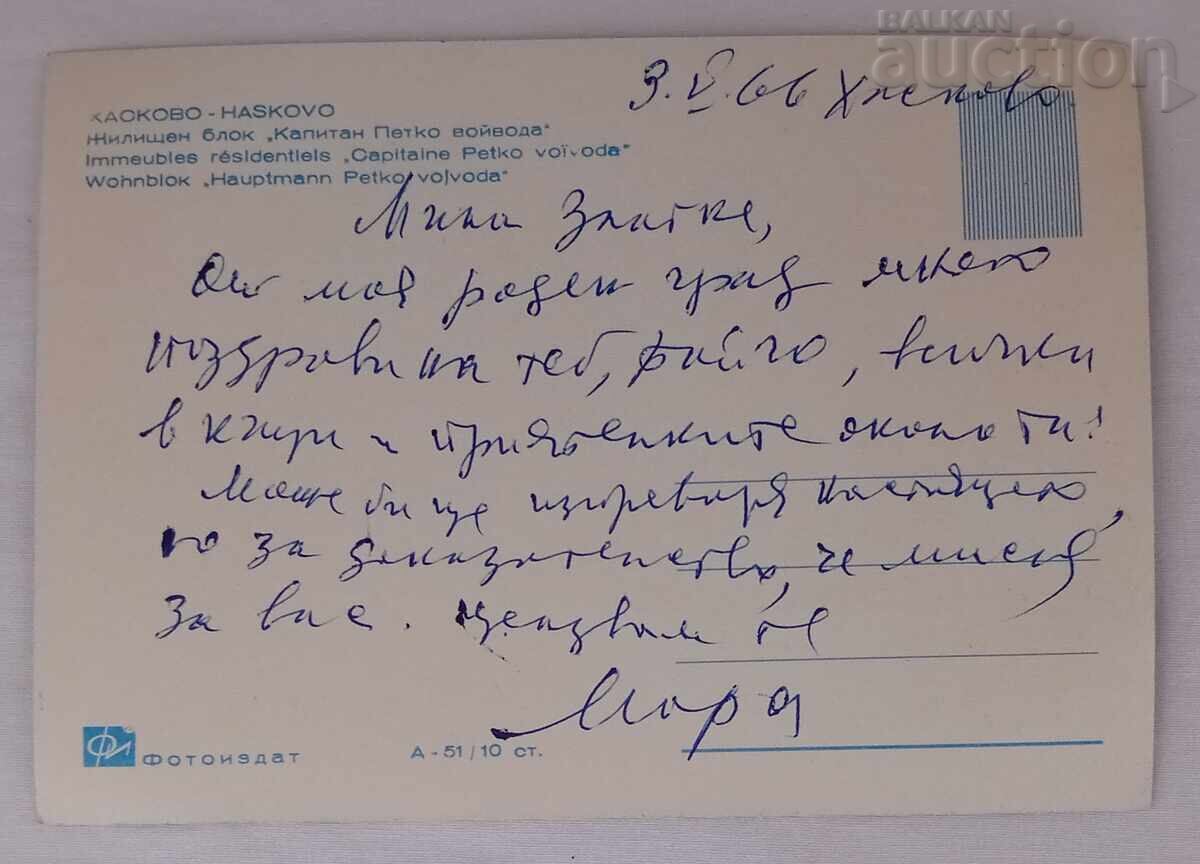 BALKAN
auction
3.V.66 Хасково
ХАСКОВО - HASKOVO
Жилищен блок „Капитан Петко войвода"
Immeubles résidentiels „Capitaine Petko voïvoda"
Wohnblok „Hauptmann Petko vojvoda"
Мила Златке,
От моя роден град много
поздрави на теб, Бойчо, всички
в къщи и приятелките около ти!
Може би ще изпреваря настоящето
но за доказателство, че мисля
за вас. Целувам те
Мара
Фотоиздат
А - 51 / 10 ст.